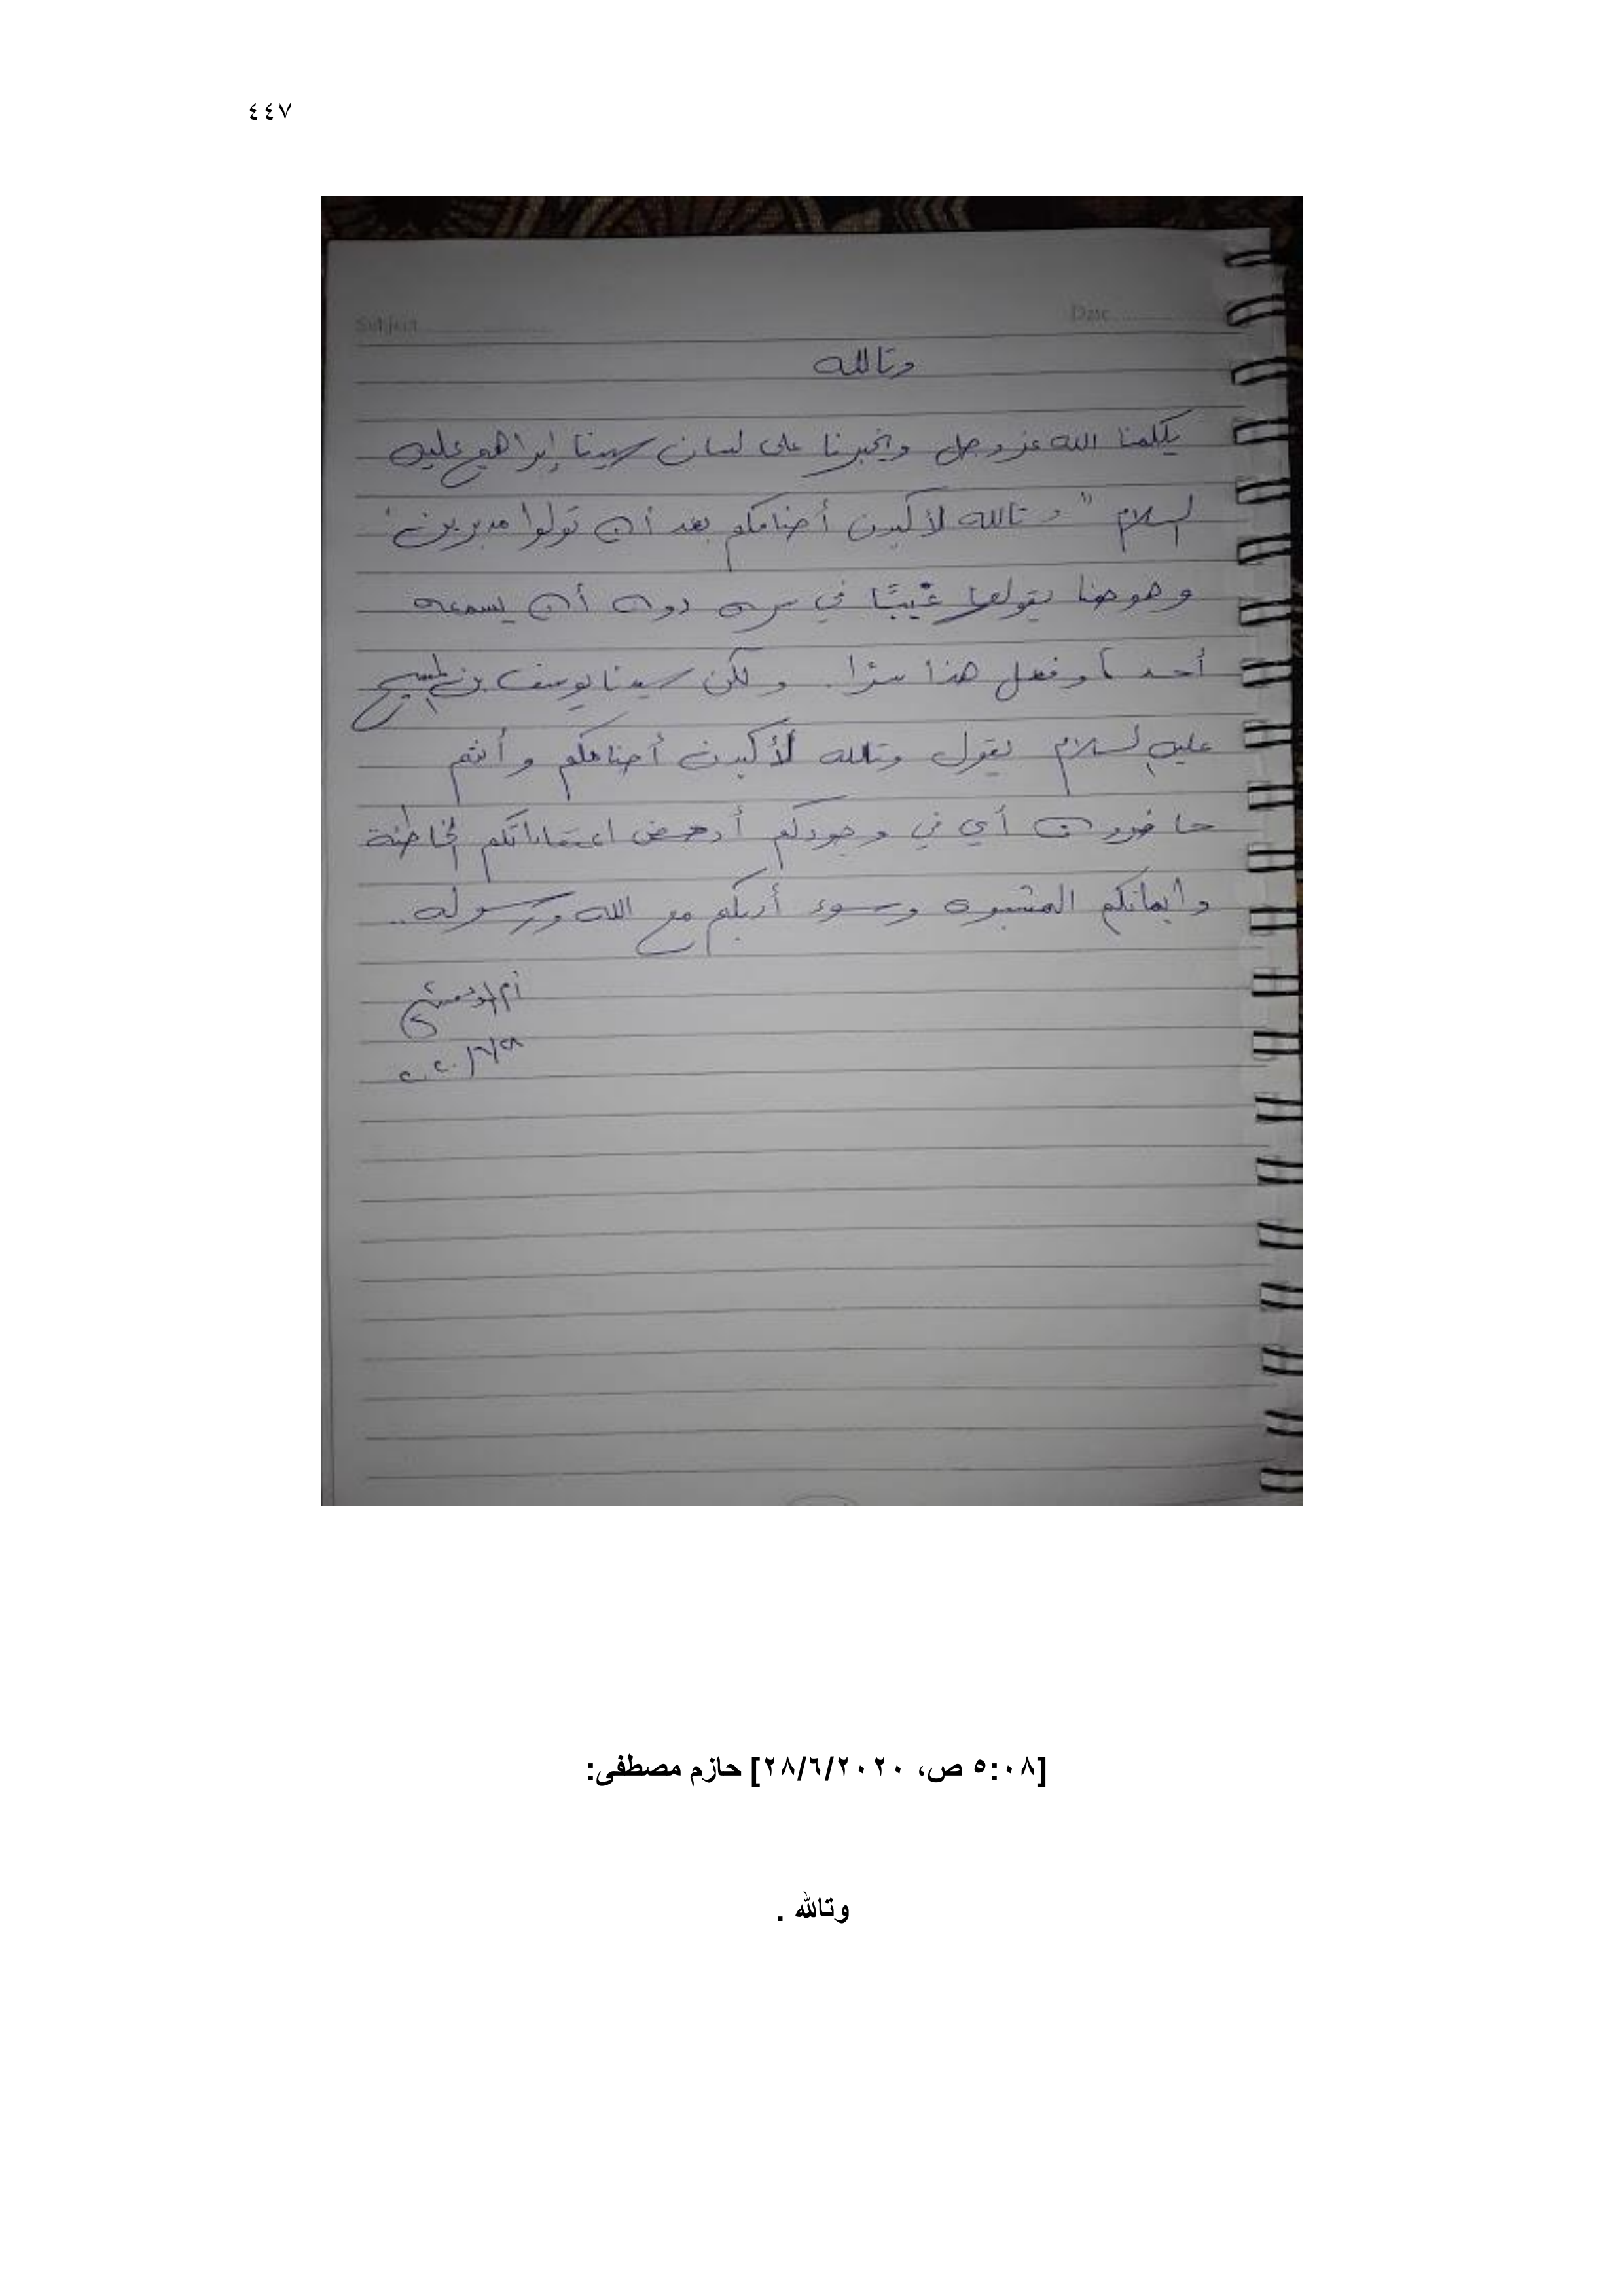 ٤٤٧
Subject
Date
وتالله
يكلمنا الله عز وجل ويخبرنا على لسان سيدنا إبراهيم عليه
السلام " وتالله لأكيدن أصنامكم بعد أن تولوا مدبرين "
وهو هنا يقولها غيبًا في سره دون أن يسمعه
أحد وفعل هذا سرًا. ولكن سيدنا يوسف بن المسيح
عليه السلام يقول وتالله لأكيدن أصنامكم وأنتم
حاضرون أي في وجودكم أدحض اعتقاداتكم الخاطئة
وايمانكم المشبوه وسوء أدبكم مع الله ورسوله ..
٢٨/٦/٢٠٢٠
[٥:٠٨ ص، ٢٨/٦/٢٠٢٠] حازم مصطفى:
وتالله .